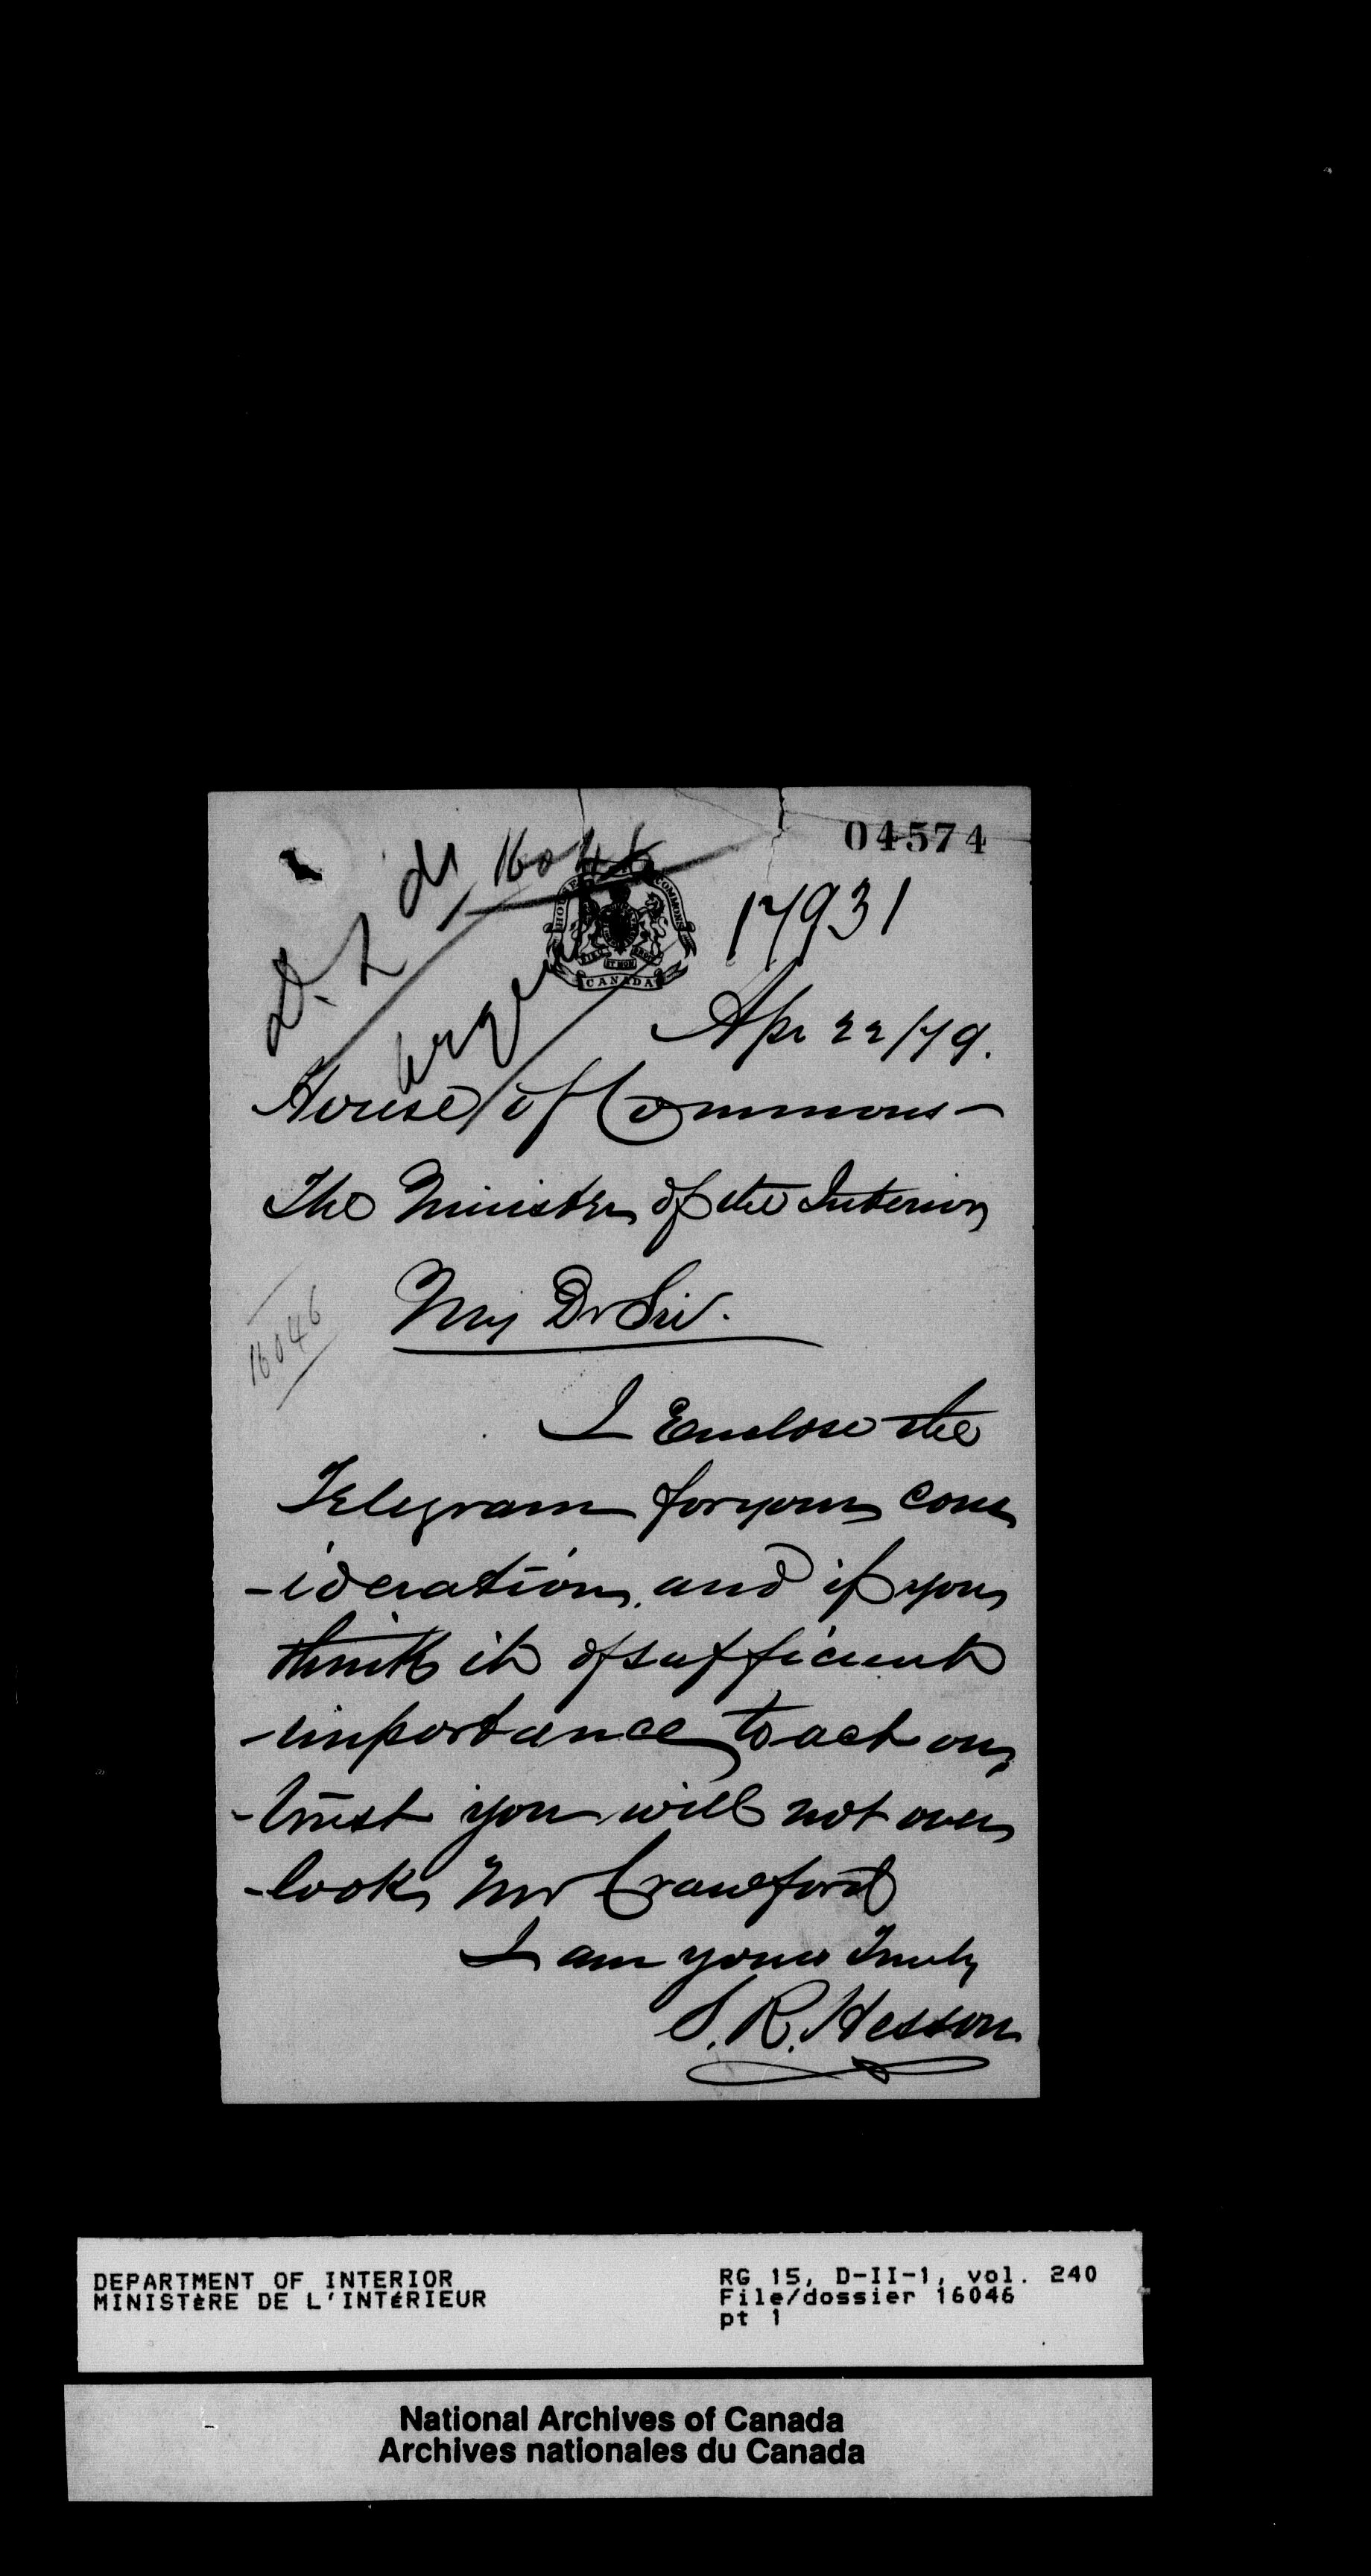 04574
D. L
of 16046
17931
HOUSE OF COMMONS
DIEU ET MON DROIT
CANADA
Urgent
Apr 22/79.
House of Commons —
The Minister of the Interior
My Dr Sir.
16046
I Enclose the
Telegram for your cons
-ideration, and if you
think it of sufficient
-importance to act on,
-trust you will not over
-look, Mr Crawford
I am yours Truly
S. R. Hesson
DEPARTMENT OF INTERIOR
MINISTÈRE DE L'INTÉRIEUR
RG 15, D-II-1, vol. 240
File/dossier 16046
pt 1
National Archives of Canada
Archives nationales du Canada